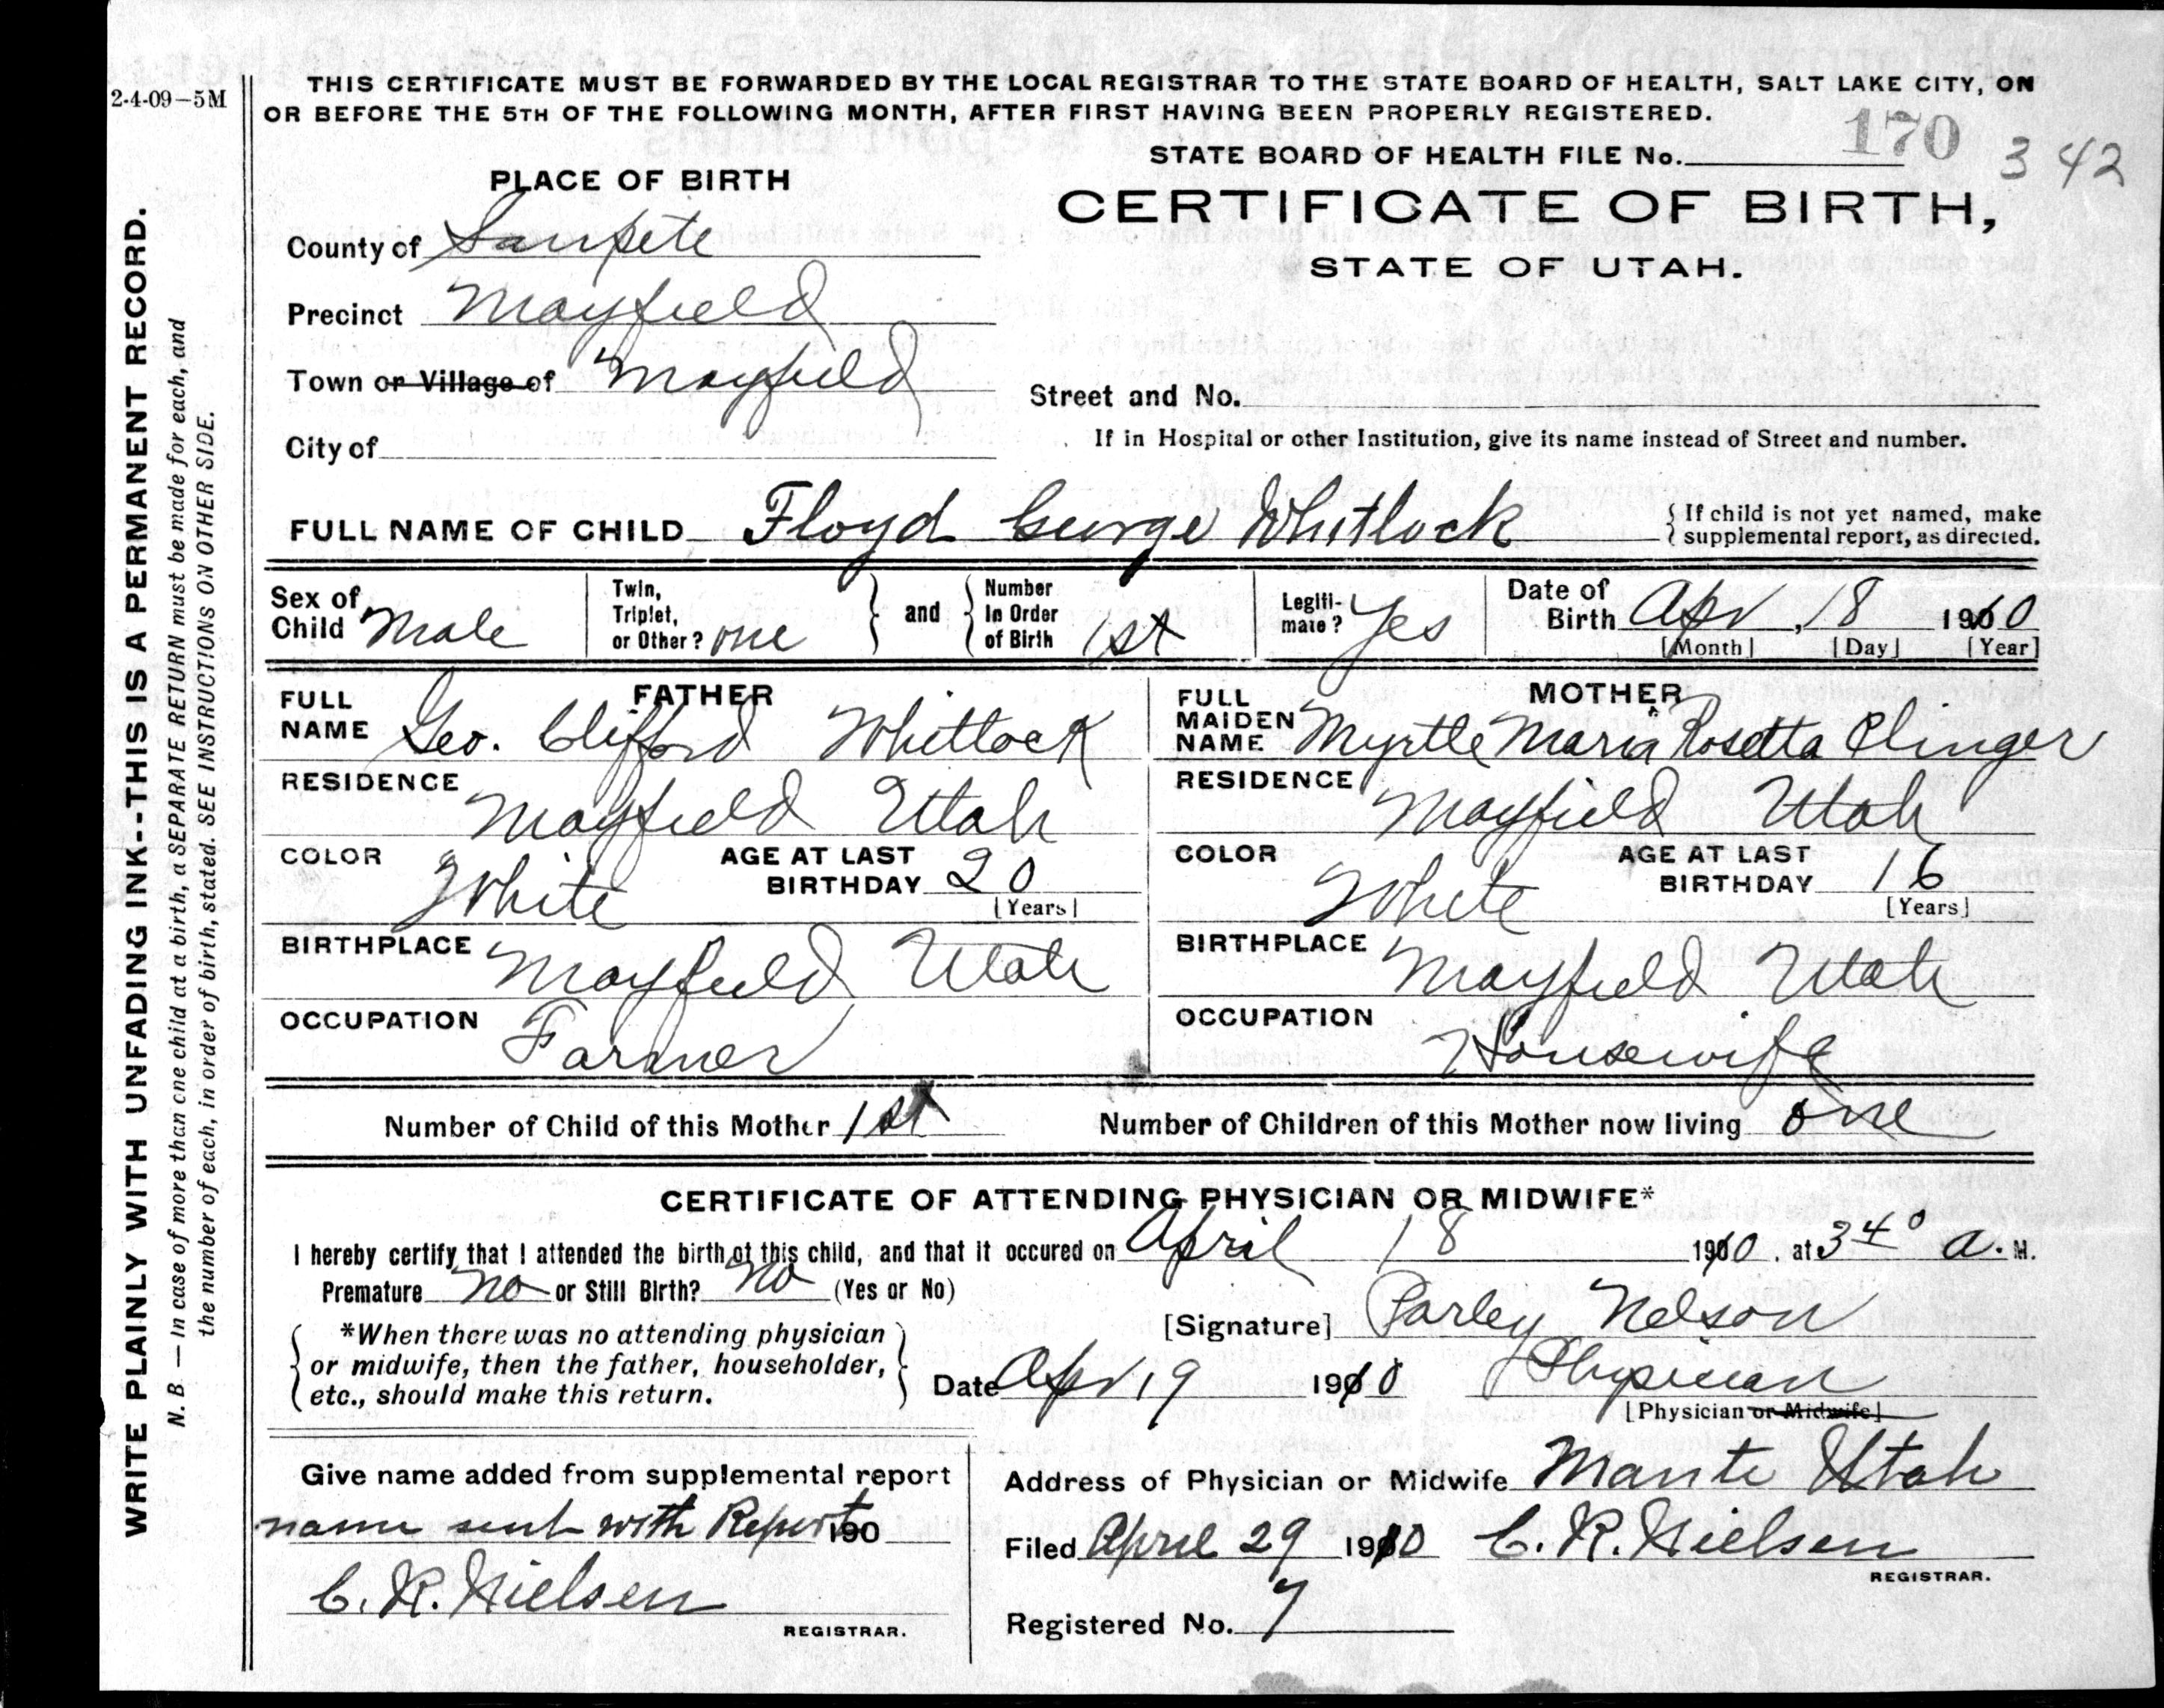 2-4-09-5M
THIS CERTIFICATE MUST BE FORWARDED BY THE LOCAL REGISTRAR TO THE STATE BOARD OF HEALTH, SALT LAKE CITY, ON
OR BEFORE THE 5TH OF THE FOLLOWING MONTH, AFTER FIRST HAVING BEEN PROPERLY REGISTERED.
STATE BOARD OF HEALTH FILE No. 170 342
CERTIFICATE OF BIRTH,
STATE OF UTAH.
PLACE OF BIRTH
County of Sanpete
Precinct Mayfield
Town or Village of Mayfield
City of
Street and No.
If in Hospital or other Institution, give its name instead of Street and number.
FULL NAME OF CHILD Floyd George Whitlock
If child is not yet named, make
supplemental report, as directed.
Sex of Child Male
Twin, Triplet, or Other? one
and
Number In Order of Birth 1st
Legitimate? Yes
Date of Birth Apr, 18 1910
[Month] [Day] [Year]
FATHER
FULL NAME Geo. Clifford Whitlock
RESIDENCE Mayfield Utah
COLOR White
AGE AT LAST BIRTHDAY 20
[Years]
BIRTHPLACE Mayfield Utah
OCCUPATION Farmer
MOTHER
FULL MAIDEN NAME Myrtle Maria Rosetta Clinger
RESIDENCE Mayfield Utah
COLOR White
AGE AT LAST BIRTHDAY 16
[Years]
BIRTHPLACE Mayfield Utah
OCCUPATION Housewife
Number of Child of this Mother 1st
Number of Children of this Mother now living one
CERTIFICATE OF ATTENDING PHYSICIAN OR MIDWIFE*
I hereby certify that I attended the birth of this child, and that it occured on April 18 1910. at 3 40 a. M.
Premature no or Still Birth? no (Yes or No)
*When there was no attending physician
or midwife, then the father, householder,
etc., should make this return.
[Signature] Parley Nelson
Date Apr 19 1910 Physician
[Physician or Midwife]
Give name added from supplemental report
name sent with Report 190
C. R. Nielsen
REGISTRAR.
Address of Physician or Midwife Manti Utah
Filed April 29 1910 C. R. Nielsen
REGISTRAR.
Registered No. 7
WRITE PLAINLY WITH UNFADING INK--THIS IS A PERMANENT RECORD.
N. B. — In case of more than one child at a birth, a SEPARATE RETURN must be made for each, and
the number of each, in order of birth, stated. SEE INSTRUCTIONS ON OTHER SIDE.